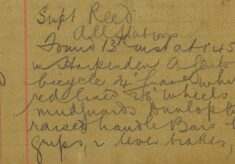 Supt Reed
All Stations
Found 13th inst at 1.45
in Harpenden A Gents
bicycle 24" frame
red lined 28" wheels
mudguards Dunlop
raised handle Bars
grips, 2 lever brakes,